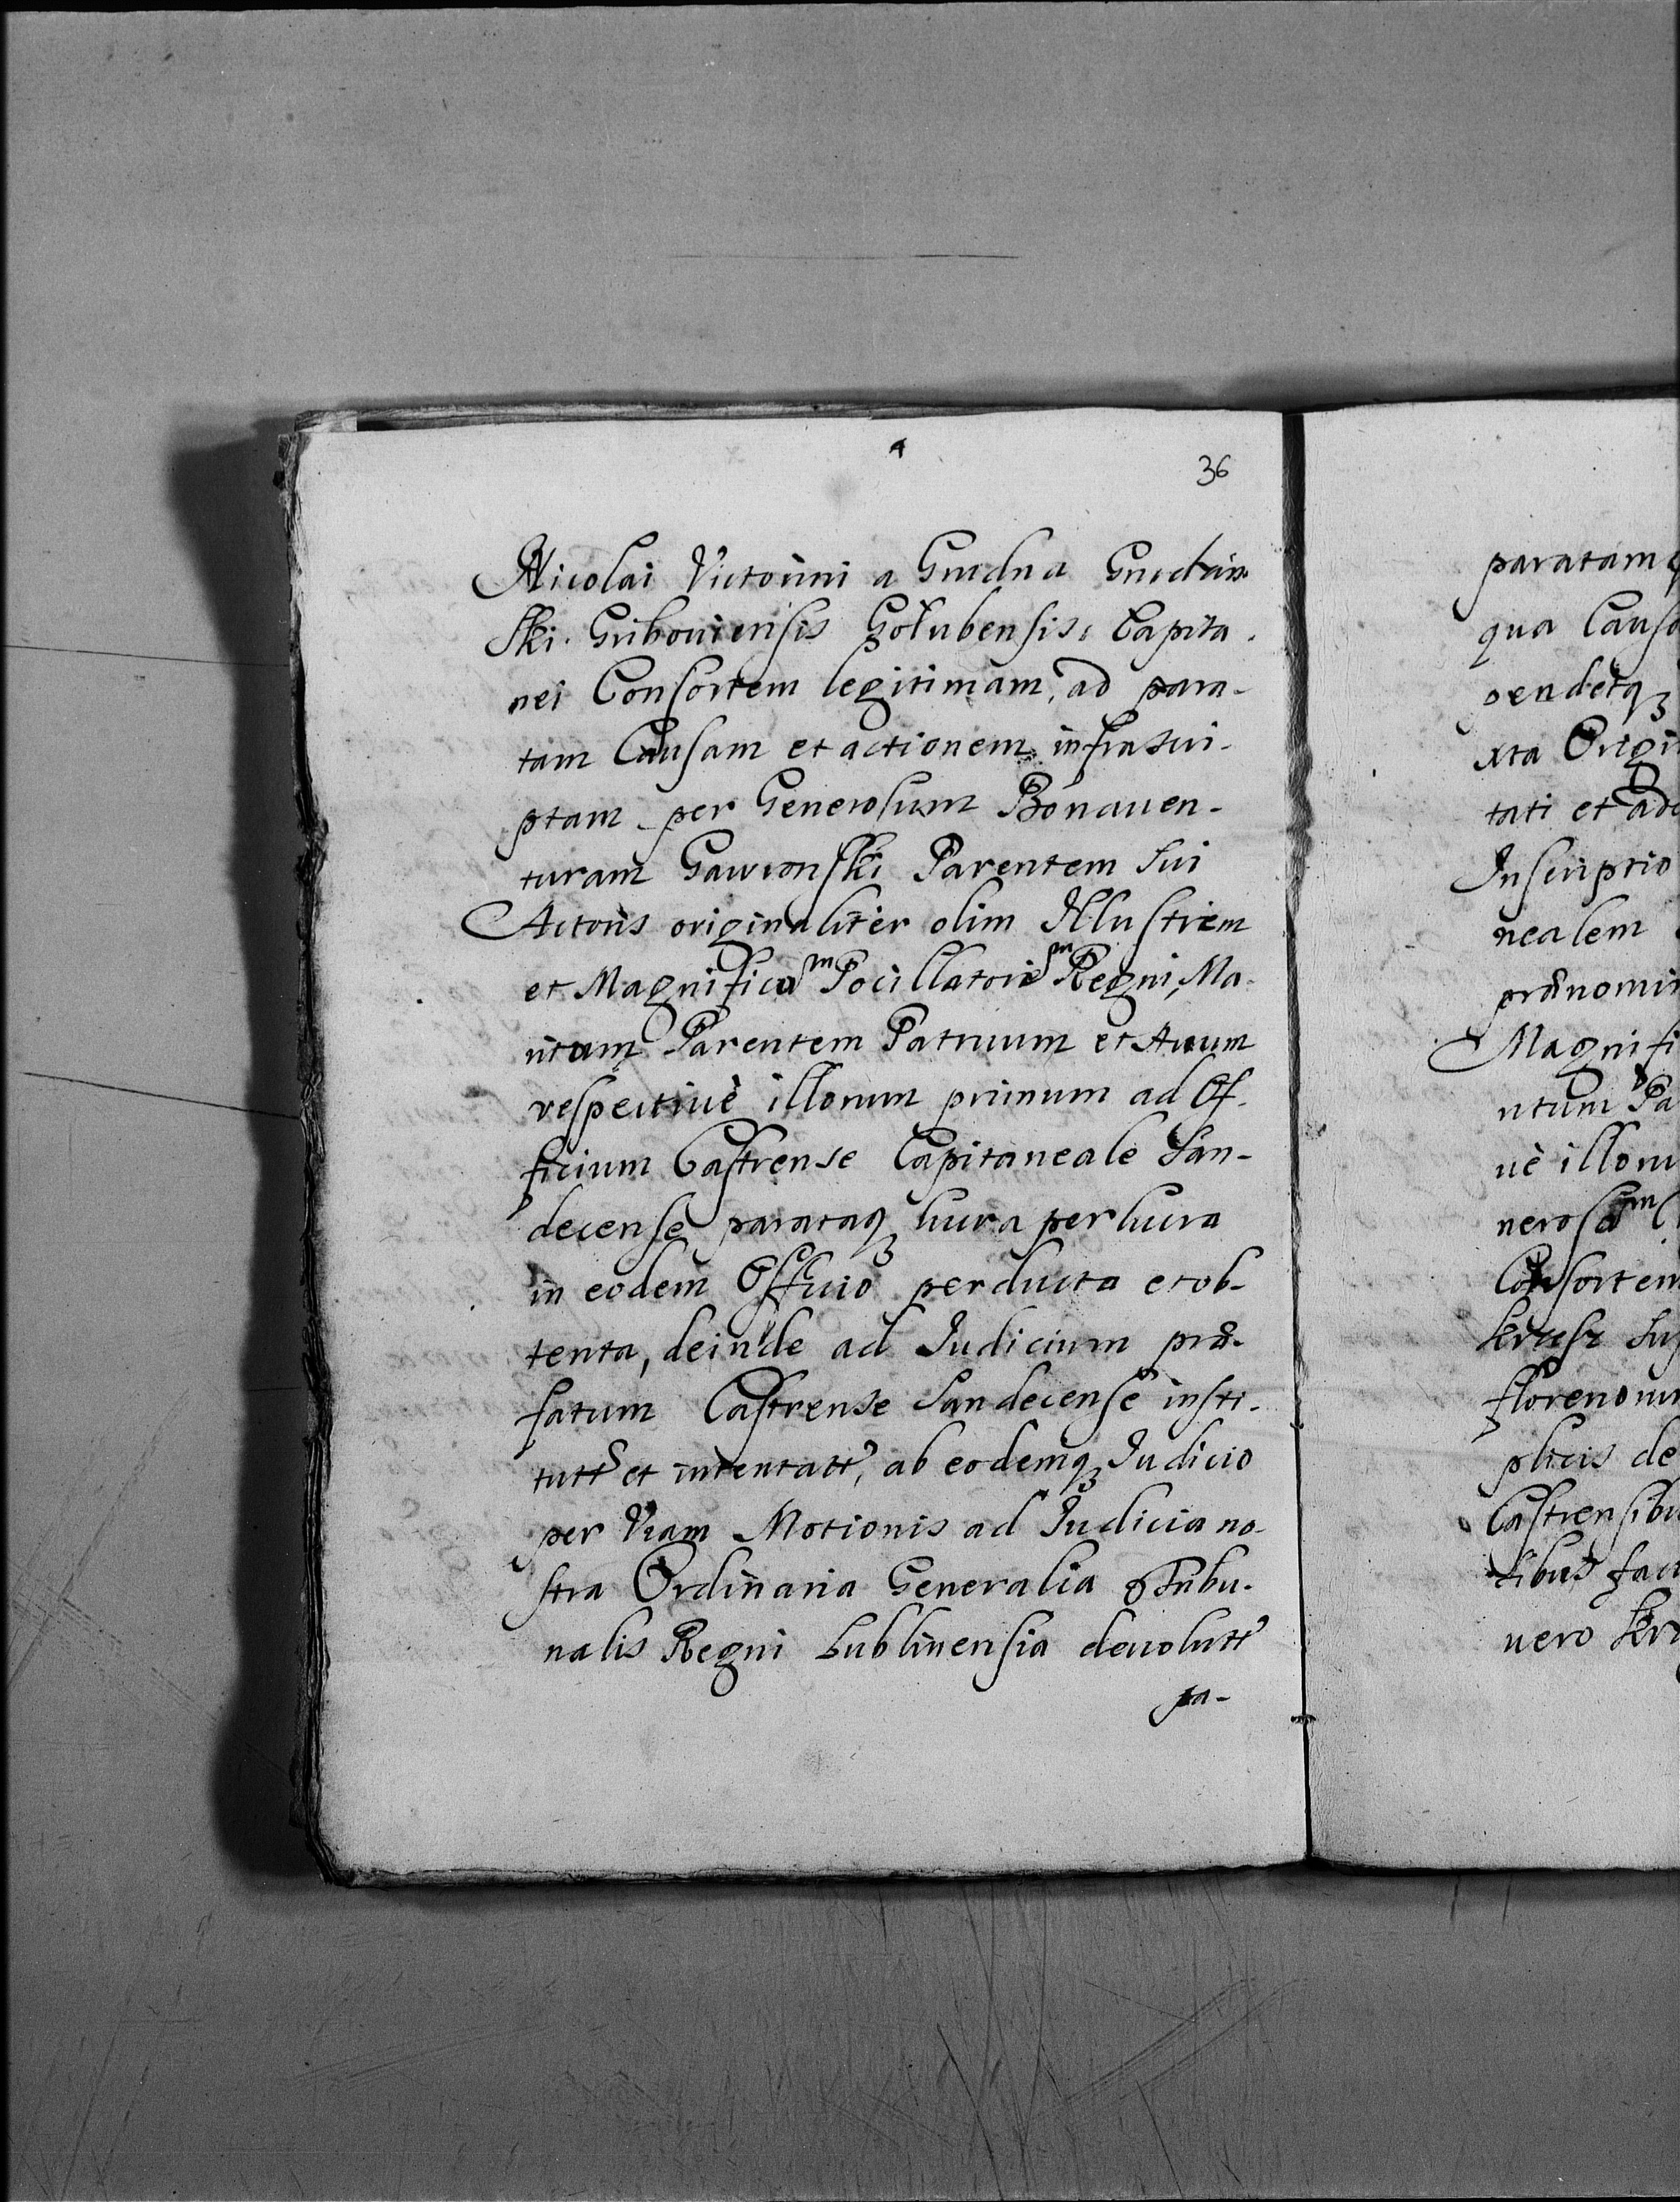 4
36
Nicolai Victorini a Grudna Grudzin-
ski. Griboviensis Golubensis, Capita.
nei Consortem legitimam, ad para-
tam Causam et actionem infrascri-
ptam per Generosum Bonauen-
turam Gawronski Parentem sui
Actoris originaliter olim Illustrem
et Magnificam Pocillatorem Regni, Ma-
ritam Parentem Patruum et Auum
respectiuè illorum primum ad Of-
ficium Castrense Capitaneale San-
decense parataq lucra per lucra
in eodem Officio perducta et ob-
tenta, deinde ad Iudicium præ-
fatum Castrense Sandecense insti-
tutt et intentatt, ab eodemq Iudicio
per Viam Motionis ad Iudicia no-
stra Ordinaria Generalia Tribu-
nalis Regni Lublinensia deuolutt
pa-
paratam
qua Causa
pendetq
xta Origi
tati et ad
Inscriptio
nealem
prænomi
Magnifi
ritum Pa
uè illoru
nerosam
Consortem
super
florenoru
plicis de
Castrensibu
tibus fac
uero